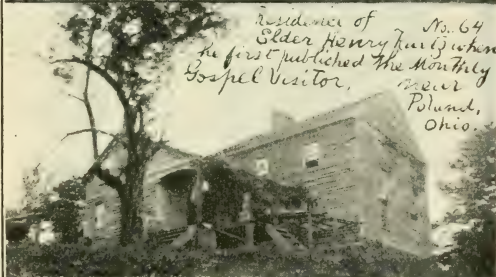 Residence of No. 64
Elder Henry Kurtz when
he first published The Monthly
Gospel Visitor, near
Poland,
Ohio.